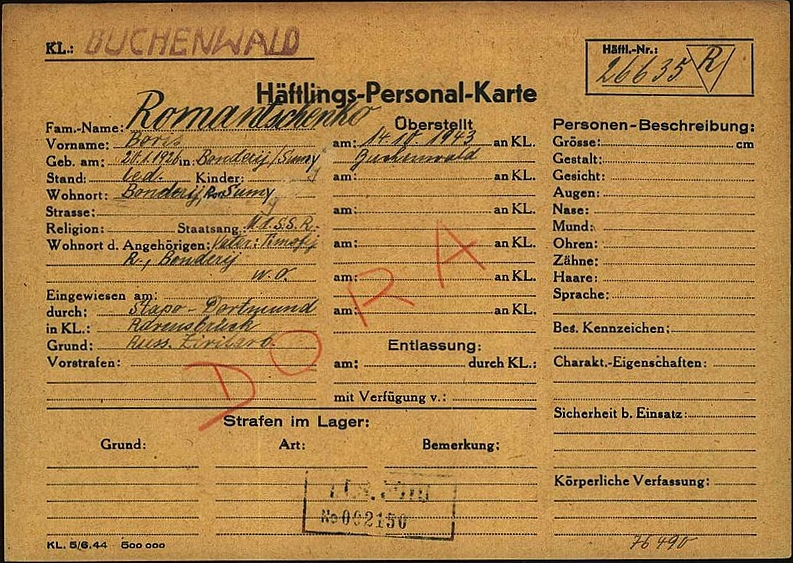 KL.: BUCHENWALD
Häftl.-Nr.:
26635 R
Häftlings-Personal-Karte
Fam.-Name: Romantschenko
Vorname: Boris
Geb. am: 20.1.1926 in: Bonderij/Sumy
Stand: led. Kinder:
Wohnort: Bonderij Sumy
Strasse:
Religion: Staatsang.
Wohnort d. Angehörigen: Vater: Timofij
R., Bonderij
w.o.
Eingewiesen am:
durch: Stapo-Dortmund
in KL.:
Grund: Russ.
Vorstrafen:
Überstellt
am: 14.10.1943 an KL.
am: an KL.
am: an KL.
am: an KL.
am: an KL.
am: an KL.
DORA
Entlassung:
am: durch KL.:
mit Verfügung v.:
Personen-Beschreibung:
Grösse: cm
Gestalt:
Gesicht:
Augen:
Nase:
Mund:
Ohren:
Zähne:
Haare:
Sprache:
Bes. Kennzeichen:
Charakt.-Eigenschaften:
Sicherheit b. Einsatz:
Körperliche Verfassung:
Strafen im Lager:
Grund: Art: Bemerkung:
No 002150
KL. 5/6.44 500 000
76490